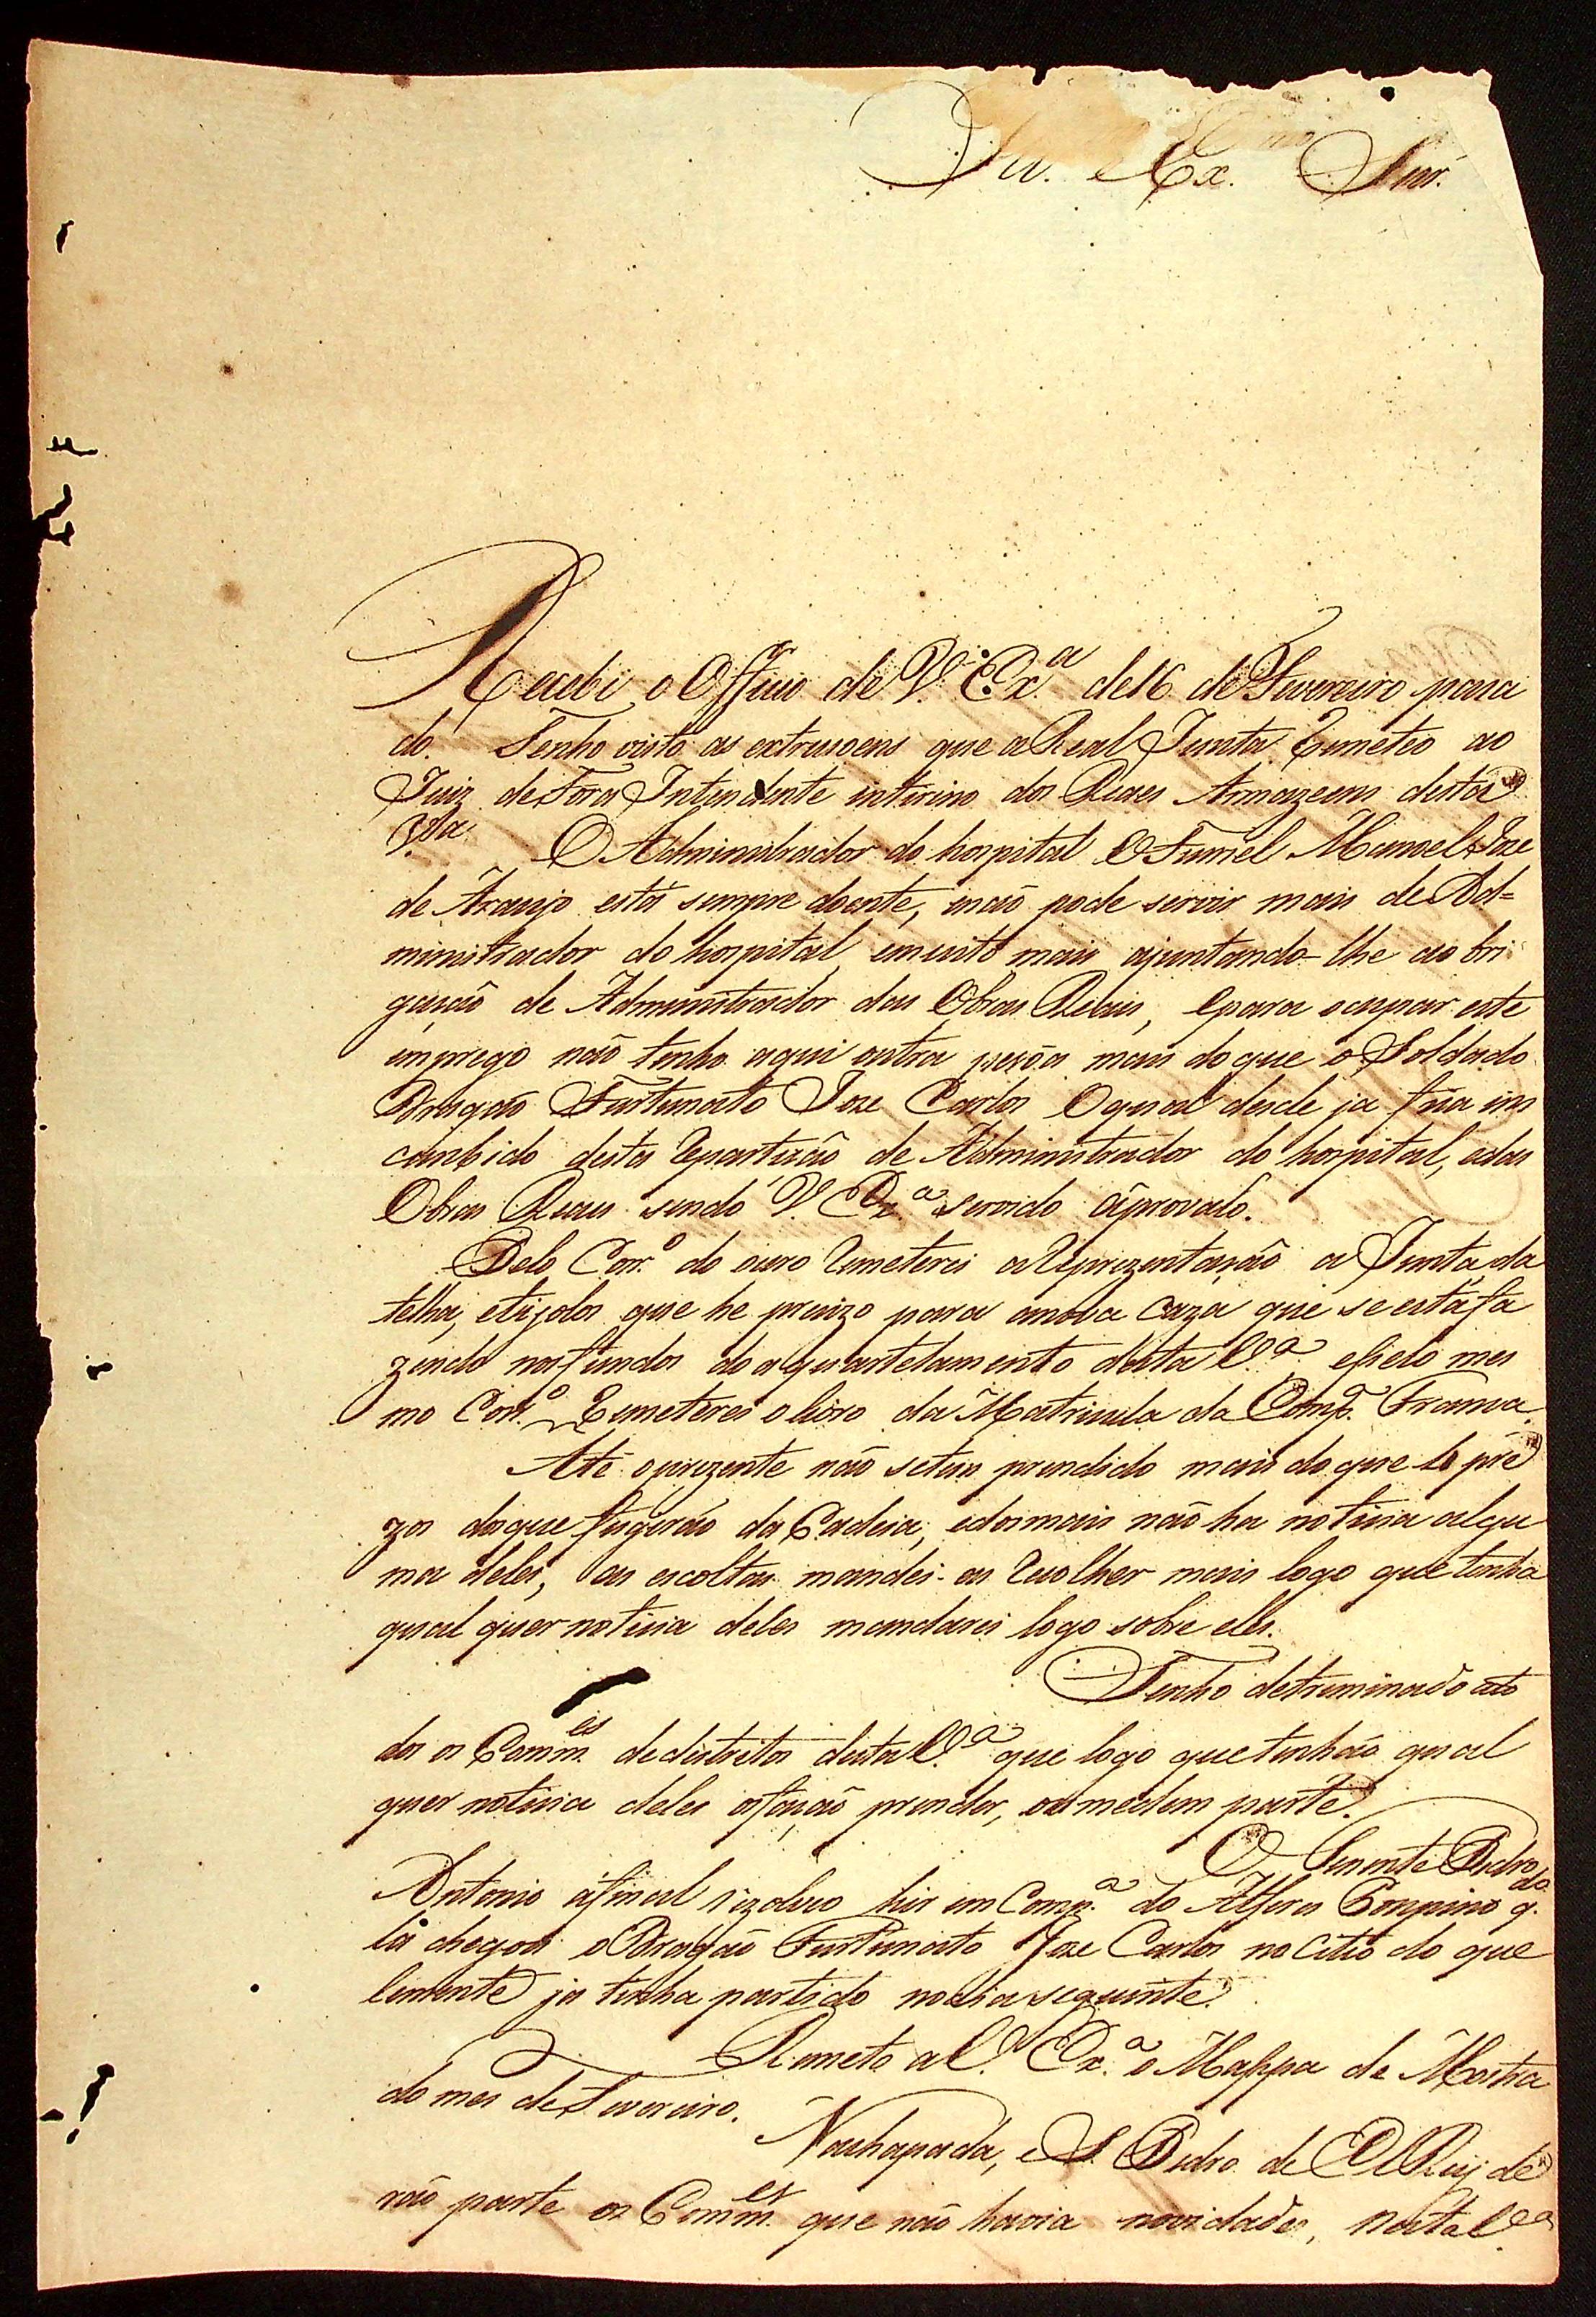 Ex. Snr.
Recebi o Officio de V. Ex.ª de 16 de Fevereiro pasa
do. Tenho visto as extrusoens que a Real Junta Remeteo ao
Juiz de Fora Intendente interino dos Reaes Armazens desta
V.ª O Administrador do hospital o Furriel Manoel Joze
de Araujo está sempre doente, enaõ pode servir mais de Ad=
ministrador do hospital, emuito mais ajuntando-lhe aobri
gaçaõ de Administrador das Obras Reais, epara ocupar este
imprego naõ tenho aqui outra pesôa mais do que o Soldado
Dragaõ Furtunato Joze Carlos Oqual desde ja fica in
cumbido desta Repartiçaõ de Administrador do hospital, edas
Obras Reaes sendo V. Ex.ª servido aprovalo.
Pelo Corr.º do ouro Remeterei aReprezentaçaõ a Junta da
telha, etijolos que he precizo para anova Caza que se estáfa
zendo nosfundos do aquartelamento desta V.ª epelo mes
mo Corr.º Remeterei o livro da Matricula da Comp.ª Franca.
Até oprezente naõ setem prendido mais doque 16 pre
zos dosque fugiraõ da Cadeia, edosmais naõ ha noticia algu
ma deles, as escoltas mandei-as Recolher mais logo que tenha
qual quer noticia deles mandarei logo sobre eles.
Tenho detreminado ato
dos os Comm.es dedistritos desta V.ª que logo que tenhaõ qual
quer noticia deles osfaçaõ prender, oumedem parte.
O Tenente Pedro
Antonio áfinal rezolveo hir em Comp.ª do Alferes q. do
lá chegou o Dragaõ Furtunato Joze Carlos no Citio do que
limente ja tinha partido nodia seguinte.
Remeto a V. Ex.ª o Mappa de Mostra
do mes de Fevereiro.
Nachapada, e S. Pedro de ElRey de
raõ parte os Comm.es que naõ havia novidades, nesta V.ª